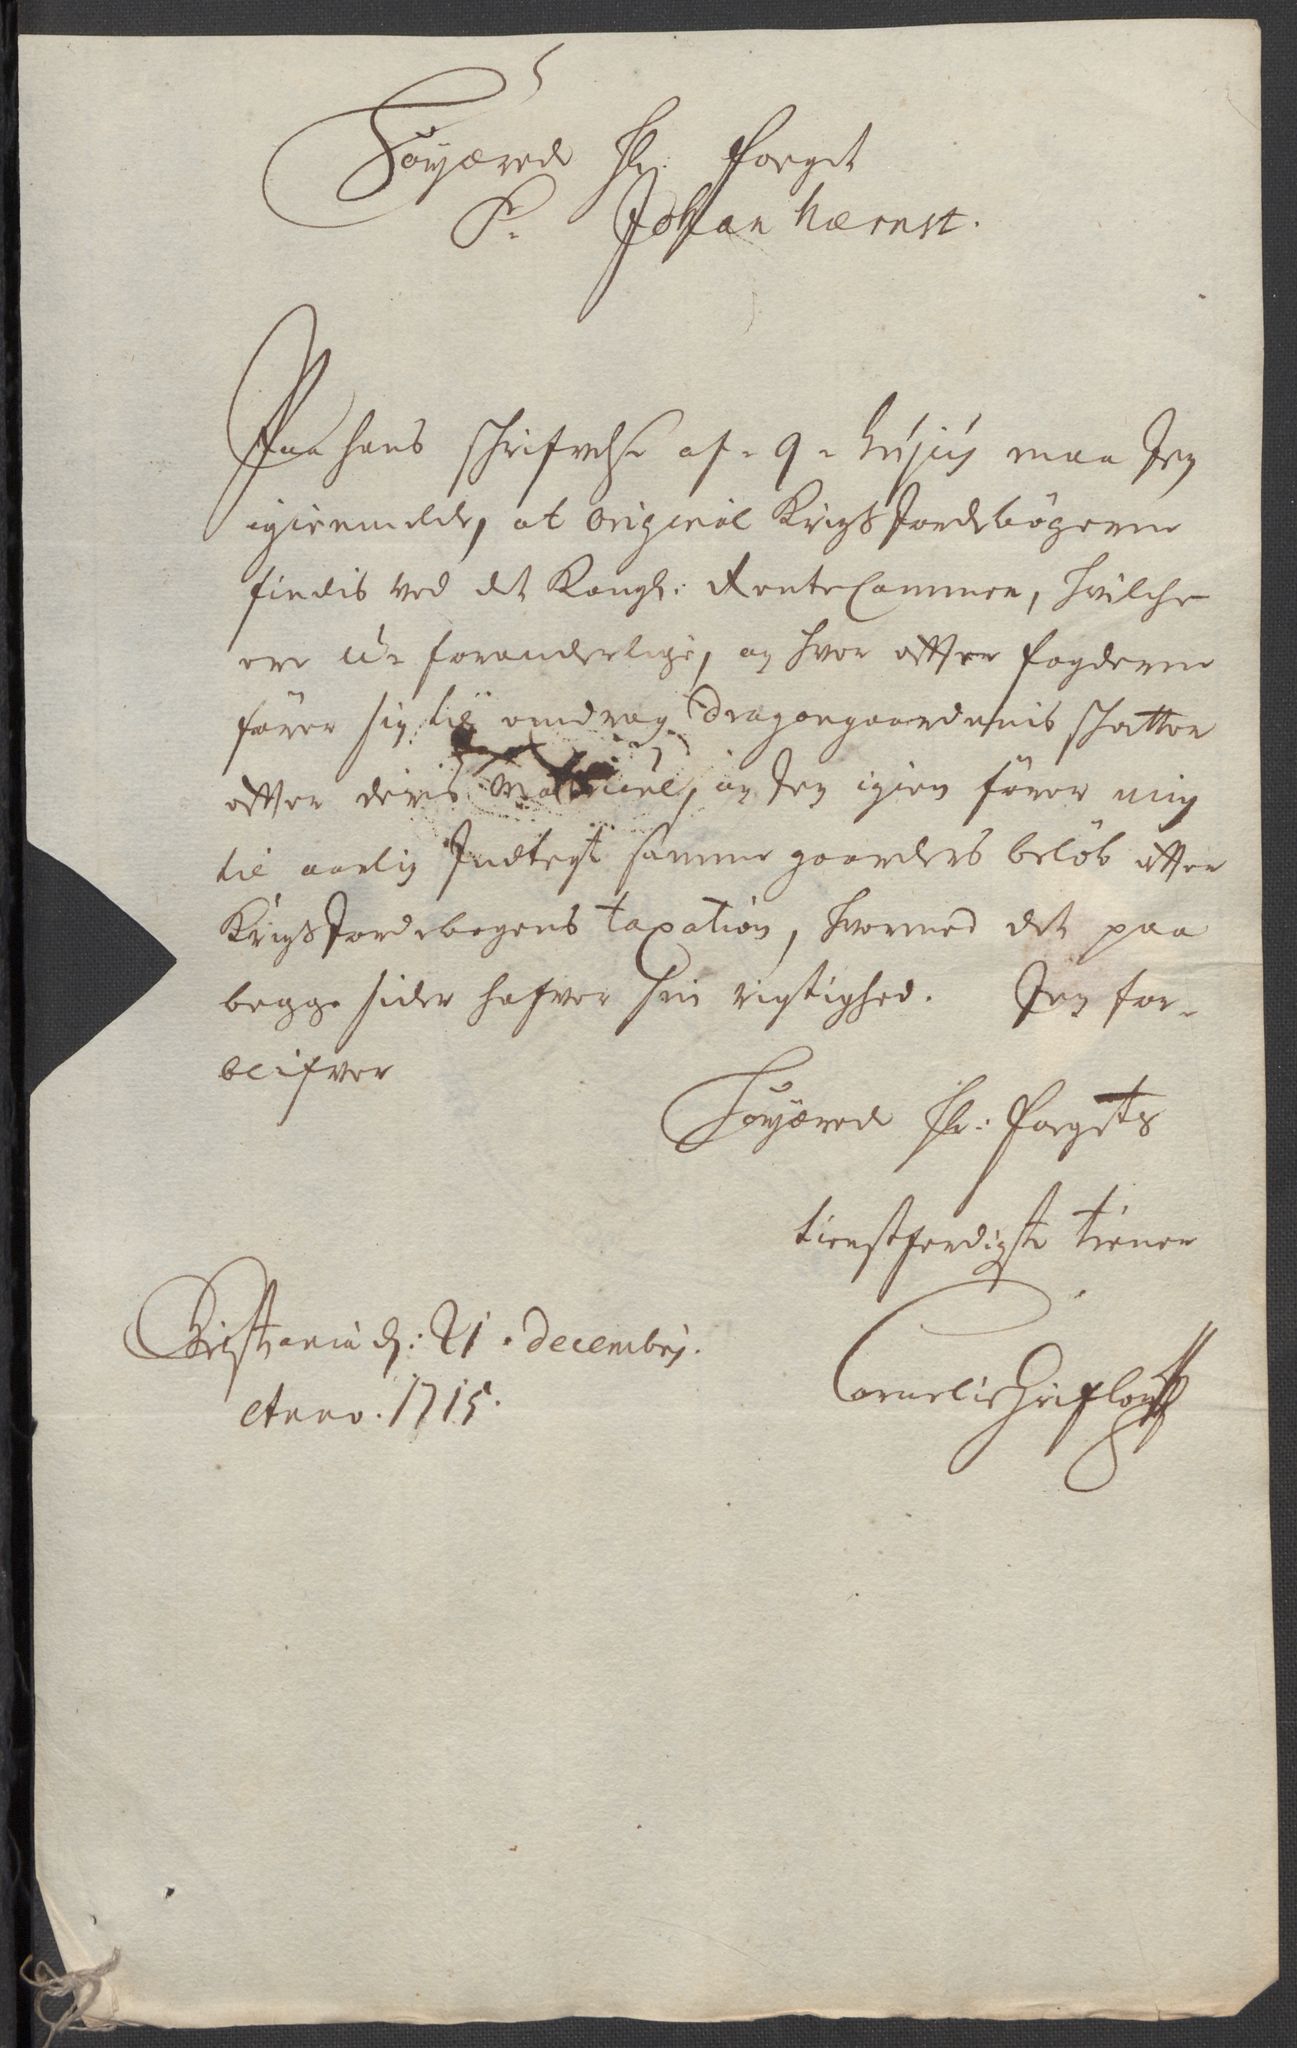 Høyærede Hr: Foeget
Sr. Johan Hærnst.
Paa hans schrifvelse af 9 hujus maa Jeg
igienmelde, at original KrigsJordebøgerne
findis ved det Kongl: RenteCammer, hvilche
ere u-foranderlige, og hvor efter fogderne
fører sig til omdrag dragongaardernis schatter
efter deris Matricul, og Jeg igien fører mig
til aarlig Indtegt samme gaarders beløb efter
KrigsJordebogens taxation, hvormed det paa
begge sider hafver sin rigtighed. Jeg for-
blifver
Høyærede Hr: Foegets
tienstferdigste tiener
Christiania d: 21 decembrj.
Anno. 1715.
Cornelis